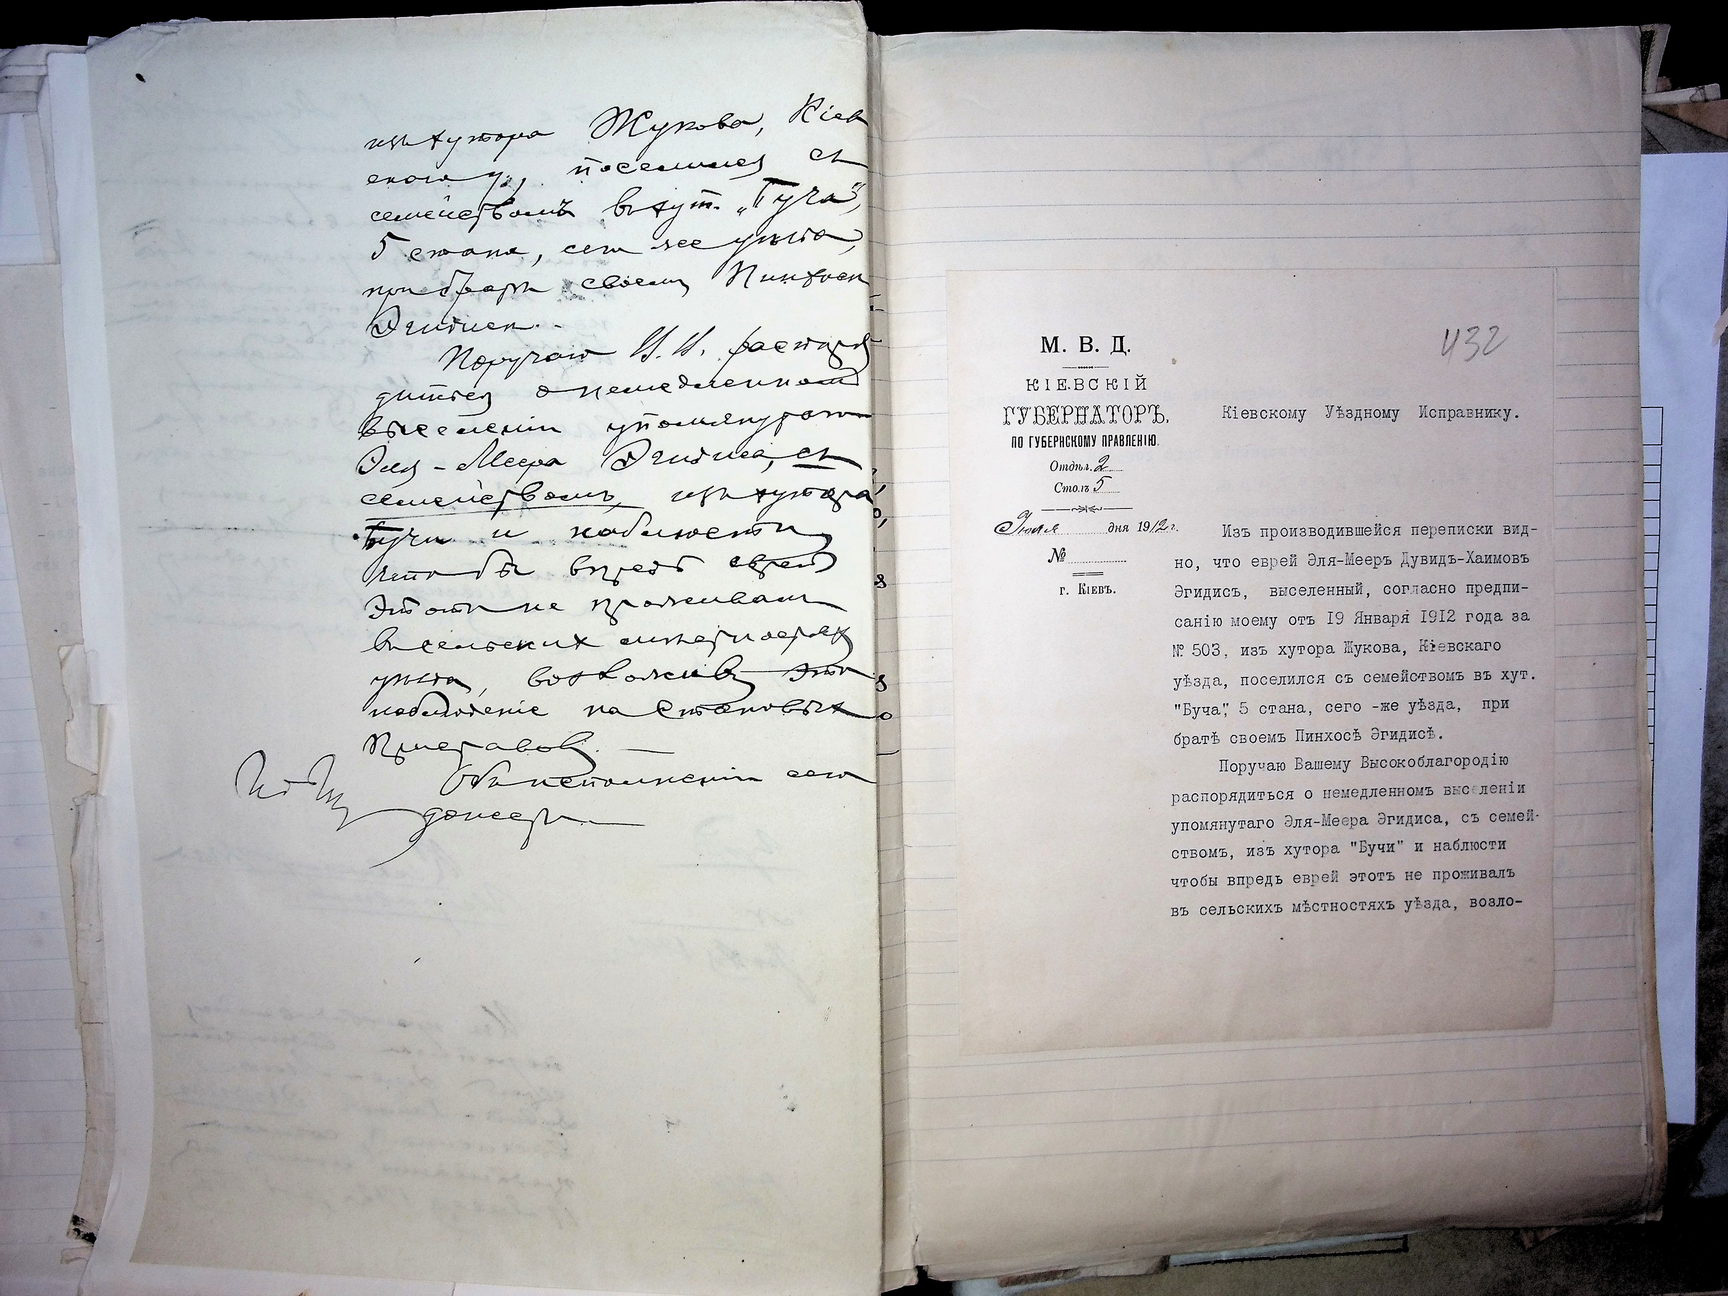 изъ хутора Жукова, Кіев
скаго у., поселился съ
семействомъ въ хут. „Буча",
5 стана, сего же уѣзда,
при братѣ своемъ Пинхосѣ
Эгидисѣ.
Поручаю И. И. распоря
диться о немедленномъ
выселеніи упомянутаго
Эля-Меера Эгидиса, съ
семействомъ, изъ хутора
Бучи и наблюсти
чтобы впредь еврей
этотъ не проживалъ
въ сельскихъ мѣстностяхъ
уѣзда, возложивъ это
наблюденіе на Становыхъ
Приставовъ. —
Объ исполненіи сего
донести.
432
М. В. Д.
КІЕВСКІЙ
ГУБЕРНАТОРЪ,
ПО ГУБЕРНСКОМУ ПРАВЛЕНІЮ.
Отдѣл. 2
Столъ 5
Іюля дня 1912 г.
№
г. КІЕВЪ.
Кіевскому Уѣздному Исправнику.
Изъ производившейся переписки вид-
но, что еврей Эля-Мееръ Дувидъ-Хаимовъ
Эгидисъ, выселенный, согласно предпи-
санію моему отъ 19 Января 1912 года за
№ 503, изъ хутора Жукова, Кіевскаго
уѣзда, поселился съ семействомъ въ хут.
"Буча", 5 стана, сего -же уѣзда, при
братѣ своемъ Пинхосѣ Эгидисѣ.
Поручаю Вашему Высокоблагородію
распорядиться о немедленномъ выселеніи
упомянутаго Эля-Меера Эгидиса, съ семей-
ствомъ, изъ хутора "Бучи" и наблюсти
чтобы впредь еврей этотъ не проживалъ
въ сельскихъ мѣстностяхъ уѣзда, возло-